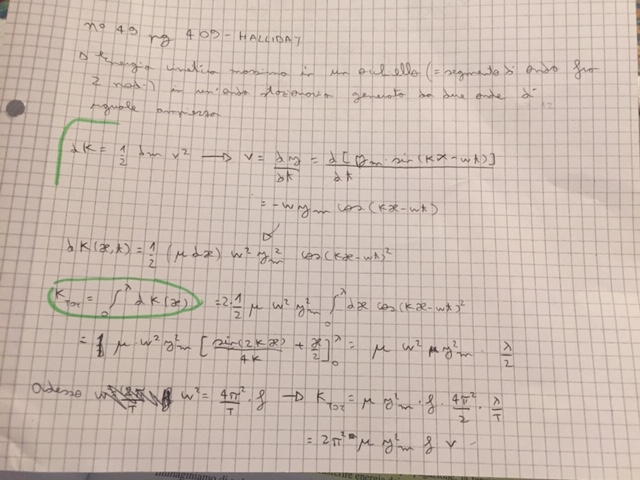 n° 49 pg 409 - HALLIDAY
Energia cinetica massima in un anello (= segmento di onda fra
2 nodi) in un'onda stazionaria generata da due onde di
uguale ampiezza
dK = 1/2 dm v² → v = dy/dt = d[y_m · sin(kx-wt)]/dt
= -w y_m cos(kx-wt)
dK(x,t) = 1/2 (μ dx) w² y_m² cos(kx-wt)²
K_TOT = ∫₀^λ dK(x) = 2·1/2 μ w² y_m² ∫₀^λ dx cos(kx-wt)²
= 1 μ w² y_m² [sin(2kx)/4k + x/2]₀^λ = μ w² μ y_m² · λ/2
Adesso w² = 4π²/T · f → K_TOT = μ y_m² · f · 4π²/2 · λ/T
= 2π² μ y_m² f v